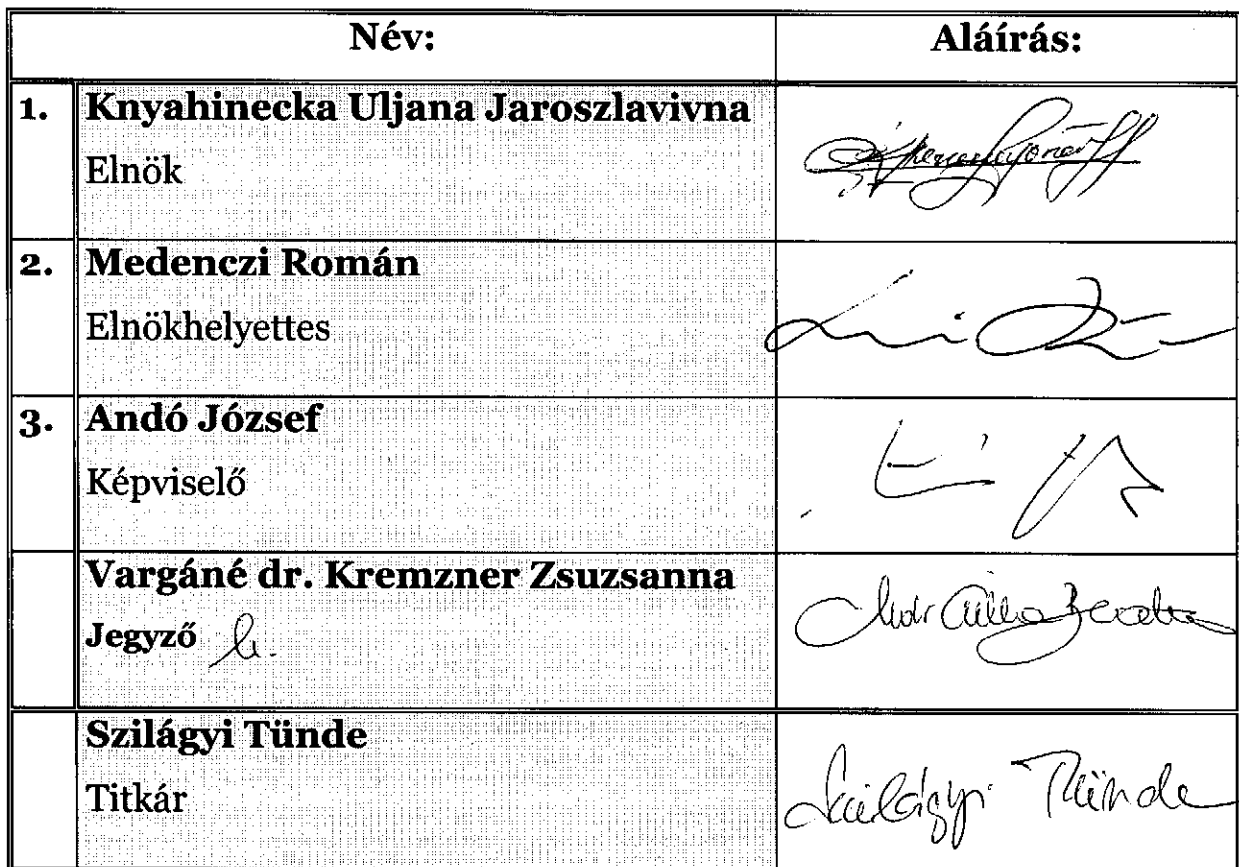 Név: Aláírás:
1. Knyahinecka Uljana Jaroszlavivna
Elnök
2. Medenczi Román
Elnökhelyettes
3. Andó József
Képviselő
Vargáné dr. Kremzner Zsuzsanna
Jegyző h.
Szilágyi Tünde
Titkár
Szilágyi Tünde